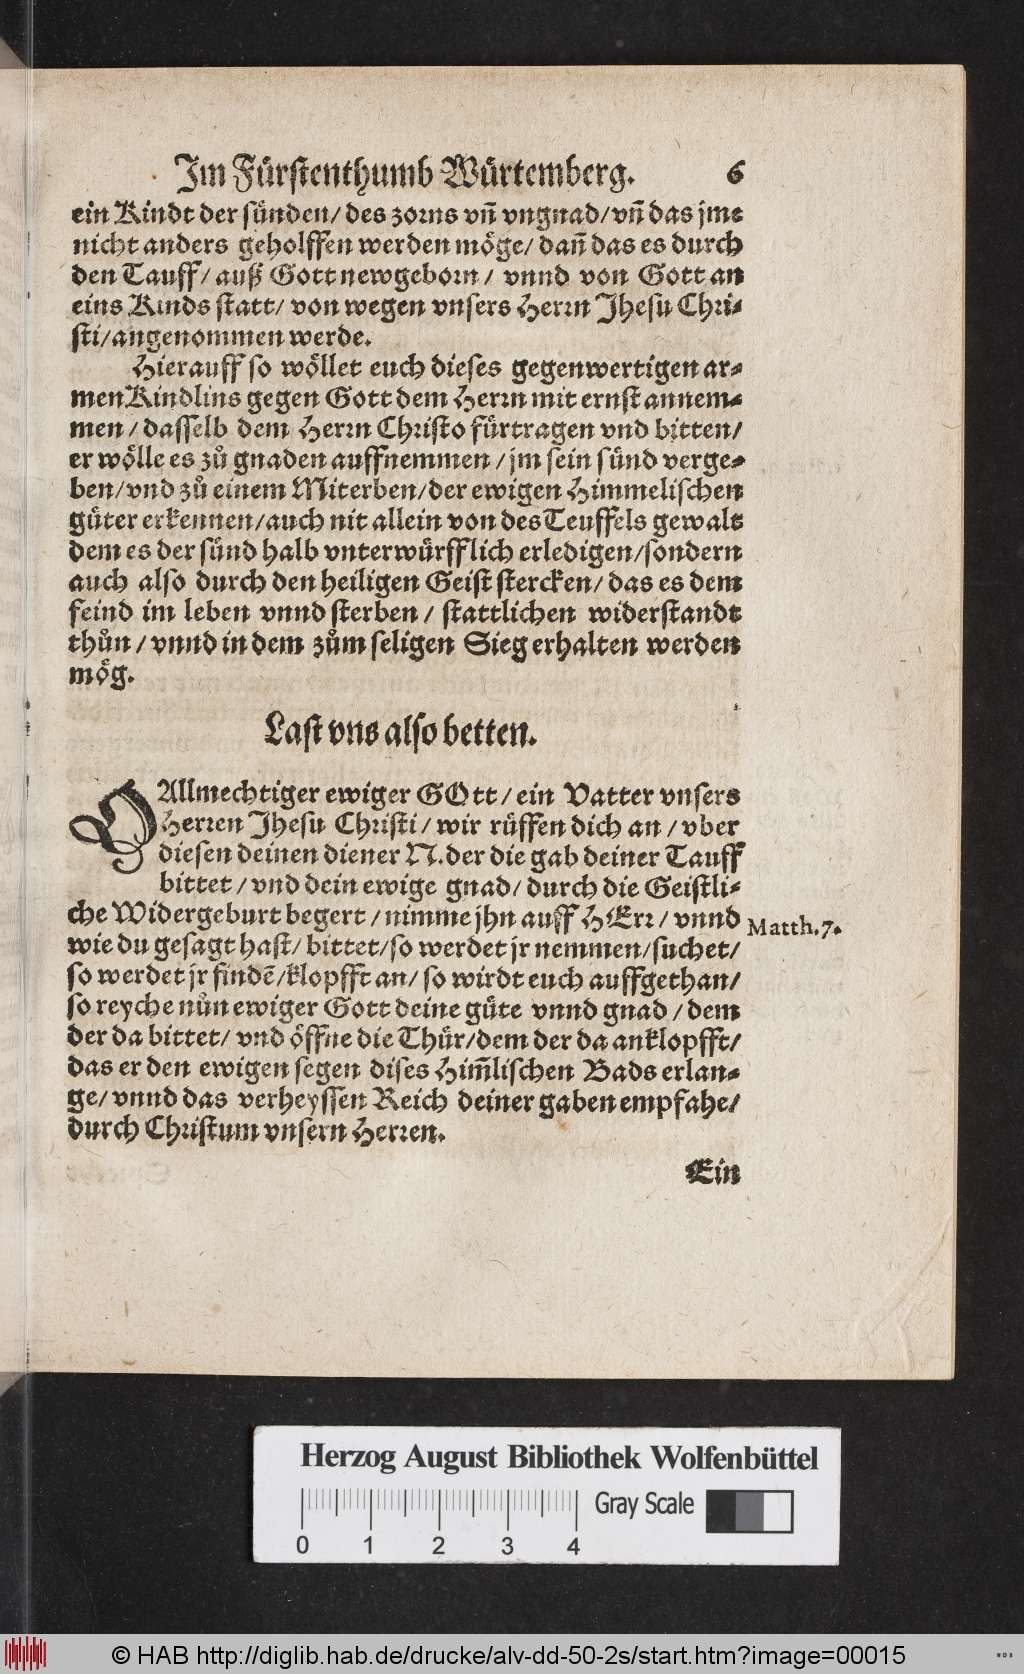 Im Fürstenthumb Würtemberg. 6
ein Kindt der sünden/ des zorns vñ vngnad/ vñ das jme
nicht anders geholffen werden möge/ dañ das es durch
den Tauff/ auß Gott newgeborn/ vnnd von Gott an
eins Kinds statt/ von wegen vnsers Herrn Jhesu Chri-
sti/ angenommen werde.
Hierauff so wöllet euch dieses gegenwertigen ar-
men Kindlins gegen Gott dem Herrn mit ernst annem-
men/ dasselb dem Herrn Christo fürtragen vnd bitten/
er wölle es zů gnaden auffnemmen/ jm sein sünd verge-
ben/ vnd zů einem Miterben/ der ewigen Himmelischen
güter erkennen/ auch nit allein von des Teuffels gewalt
dem es der sünd halb vnterwürfflich erledigen/ sondern
auch also durch den heiligen Geist stercken/ das es dem
feind im leben vnnd sterben/ stattlichen widerstandt
thůn/ vnnd in dem zům seligen Sieg erhalten werden
mög.
Last vns also betten.
O Allmechtiger ewiger GOtt/ ein Vatter vnsers
Herren Jhesu Christi/ wir rüffen dich an/ vber
diesen deinen diener N. der die gab deiner Tauff
bittet/ vnd dein ewige gnad/ durch die Geistli-
che Widergeburt begert/ nimme jhn auff HErr/ vnnd
Matth. 7.
wie du gesagt hast/ bittet/ so werdet jr nemmen/ suchet/
so werdet jr findẽ/ klopfft an/ so wirdt euch auffgethan/
so reyche nůn ewiger Gott deine güte vnnd gnad/ dem
der da bittet/ vnd öffne die Thür/ dem der da anklopfft/
das er den ewigen segen dises Him̃lischen Bads erlan-
ge/ vnnd das verheyssen Reich deiner gaben empfahe/
durch Christum vnsern Herren.
Ein
Herzog August Bibliothek Wolfenbüttel
Gray Scale
0 1 2 3 4
© HAB http://diglib.hab.de/drucke/alv-dd-50-2s/start.htm?image=00015